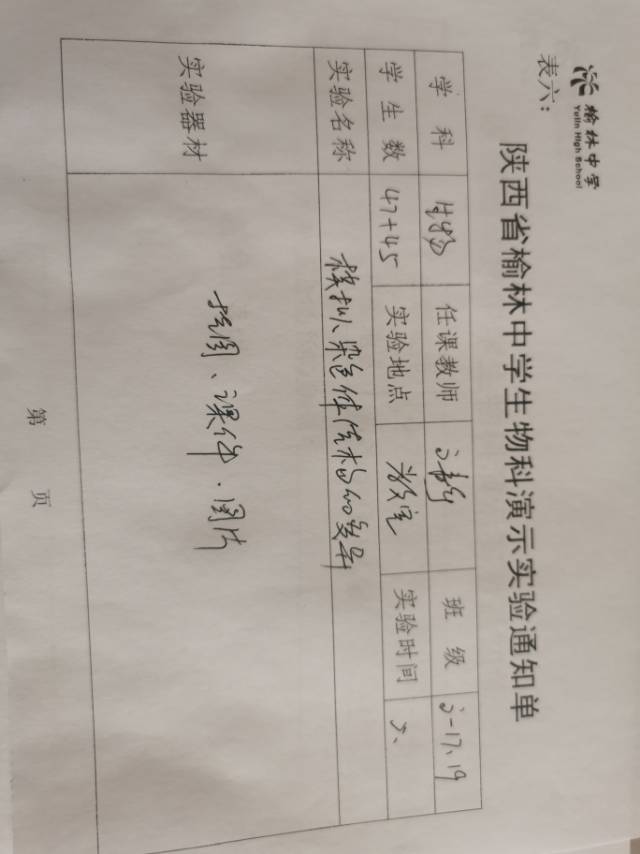 榆林中学
Yulin High School
表六：
陕西省榆林中学生物科演示实验通知单
学科 生物 任课教师 班级 17、19
学生数 47+45 实验地点 教室 实验时间
实验名称 模拟染色体结构的变异
实验器材 挂图、课件.图片
第 页